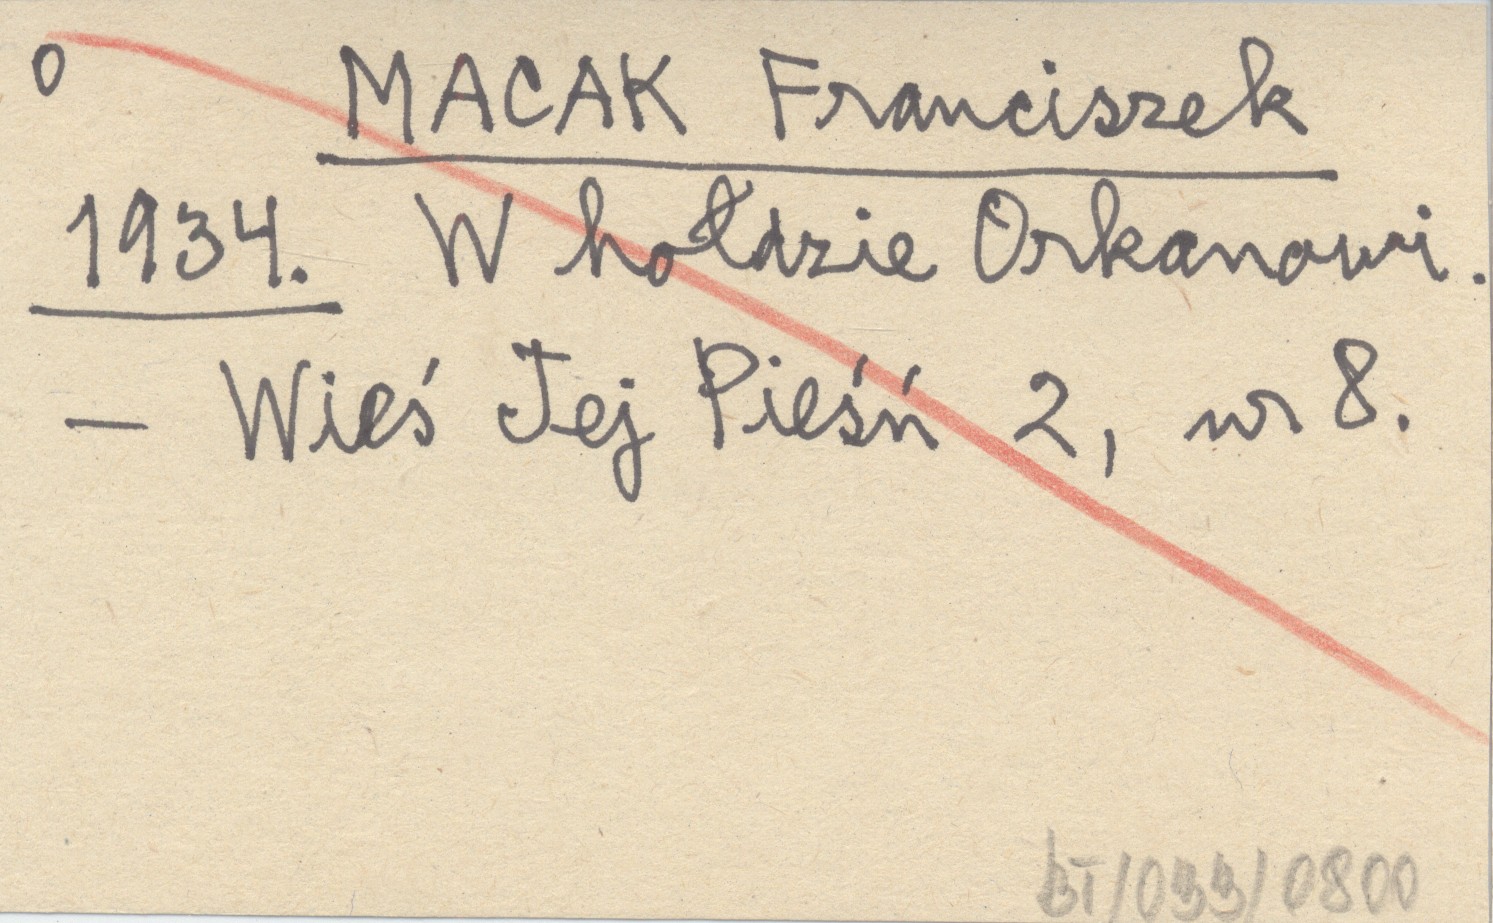 0 MACAK Franciszek
1934. W hołdzie Orkanowi.
— Wieś Jej Pieśń 2, nr 8.
BI/033/0800